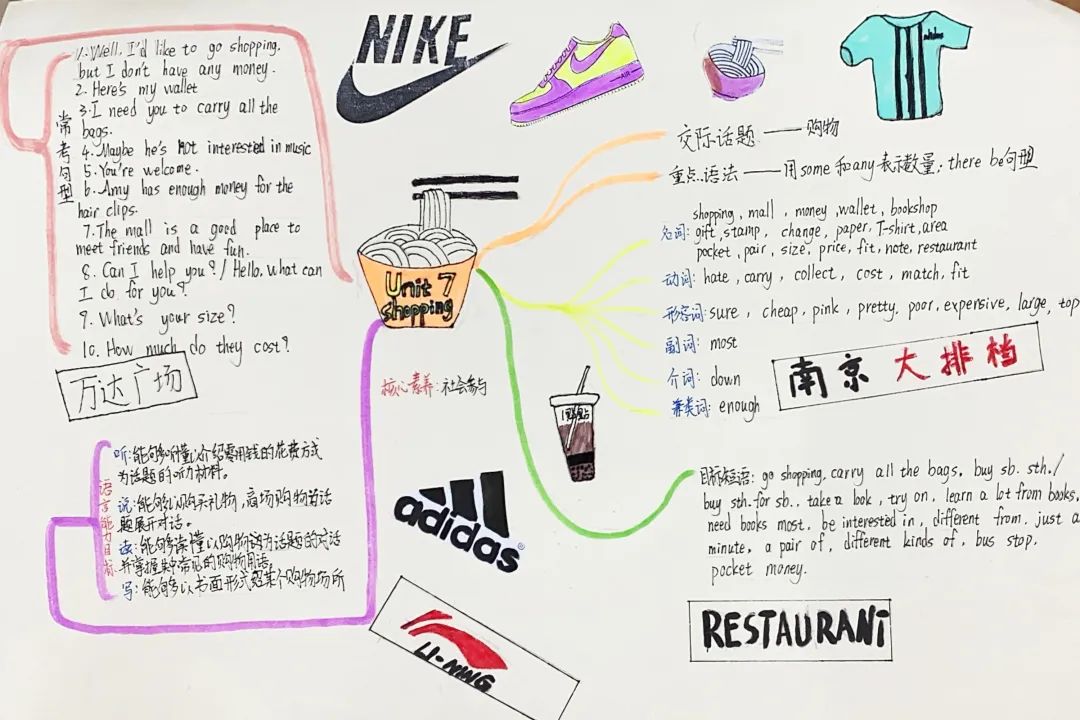 常考句型
1. Well, I'd like to go shopping.
but I don't have any money.
2. Here's my wallet
3. I need you to carry all the
bags.
4. Maybe he's not interested in music
5. You're welcome.
6. Amy has enough money for the
hair clips.
7. The mall is a good place to
meet friends and have fun.
8. Can I help you? / Hello, what can
I do for you?
9. What's your size?
10. How much do they cost?
万达广场
NIKE
AIR
adidas
Unit 7
shopping
交际话题——购物
重点语法——用some和any表示数量; there be句型
名词: shopping, mall, money, wallet, bookshop
gift, stamp, change, paper, T-shirt, area
pocket, pair, size, price, fit, note, restaurant
动词: hate, carry, collect, cost, match, fit
形容词: sure, cheap, pink, pretty, poor, expensive, large, top
副词: most
介词: down
兼类词: enough
南京大排档
核心素养: 社会参与
1點點
语言能力目标
听: 能够听懂以介绍零用钱的花费方式
为话题的听力材料。
说: 能够以购买礼物, 商场购物为话
题展开对话。
读: 能够读懂以购物为话题的对话
并掌握其中常见的购物用语。
写: 能够以书面形式介绍某个购物场所
目标短语: go shopping, carry all the bags, buy sb. sth./
buy sth. for sb., take a look, try on, learn a lot from books,
need books most, be interested in, different from, just a
minute, a pair of, different kinds of, bus stop,
pocket money.
adidas
LI-NING
RESTAURANT